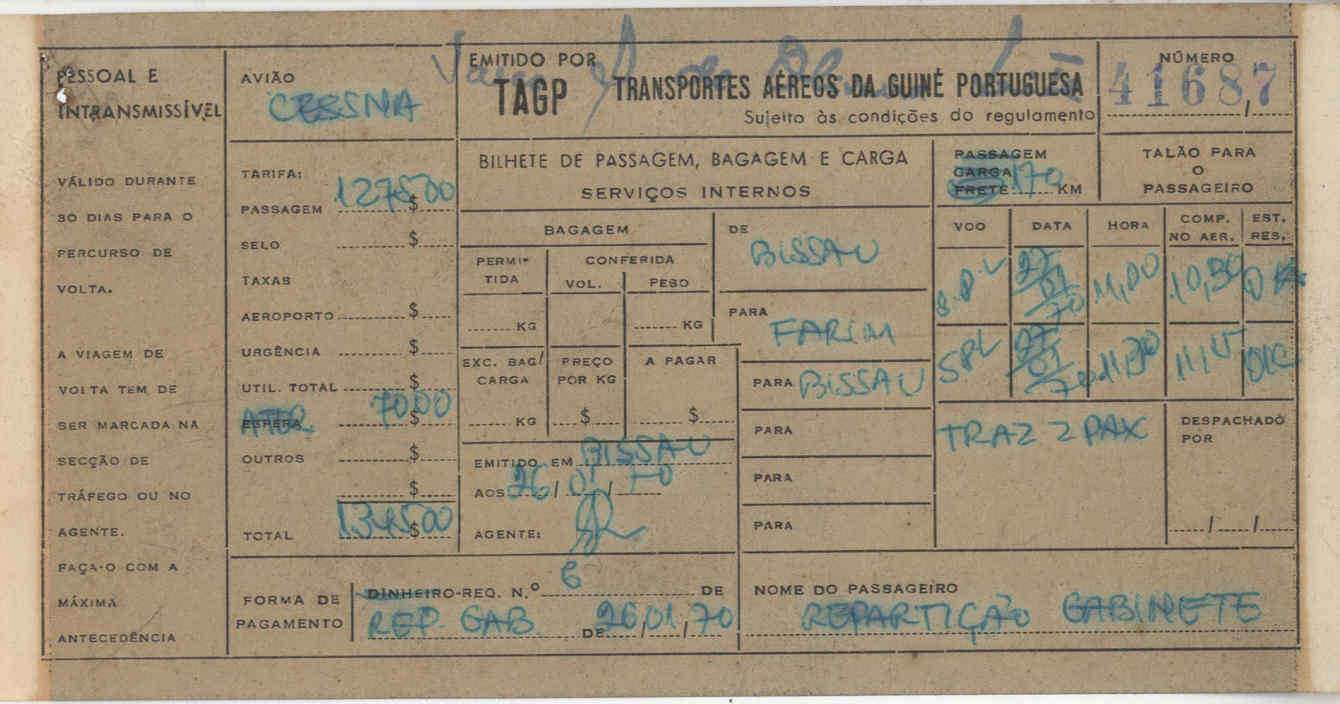 PESSOAL E
INTRANSMISSÍVEL
VÁLIDO DURANTE
30 DIAS PARA O
PERCURSO DE
VOLTA.
A VIAGEM DE
VOLTA TEM DE
SER MARCADA NA
SECÇÃO DE
TRÁFEGO OU NO
AGENTE.
FAÇA-O COM A
MÁXIMA
ANTECEDÊNCIA
AVIÃO
CESSNA
TARIFA:
PASSAGEM 1275$00
SELO $
TAXAS
AEROPORTO $
URGÊNCIA $
UTIL. TOTAL $
ESPERA 70$00
OUTROS $
$
TOTAL 1345$00
EMITIDO POR
TAGP TRANSPORTES AÉREOS DA GUINÉ PORTUGUESA
Sujeito às condições do regulamento
NÚMERO
41687
BILHETE DE PASSAGEM, BAGAGEM E CARGA
SERVIÇOS INTERNOS
PASSAGEM
CARGA
FRETE 170 KM
TALÃO PARA
O
PASSAGEIRO
BAGAGEM
PERMI-
TIDA
CONFERIDA
VOL. PESO
KG KG
EXC. BAG/
CARGA
PREÇO
POR KG
A PAGAR
KG $ $
EMITIDO EM BISSAU
AOS 26/01/70
AGENTE:
DE
BISSAU
PARA
FARIM
PARA BISSAU
PARA
PARA
PARA
VOO DATA HORA COMP. NO AER. EST. RES.
27/01/70 11,00 10,30
SPL 27/01/70 11,30 11,15
TRAZ 2 PAX
DESPACHADO
POR
/ /
FORMA DE
PAGAMENTO
DINHEIRO-REQ. N.º 6 DE
REP. GAB. DE 26/01/70
NOME DO PASSAGEIRO
REPARTIÇÃO GABINETE